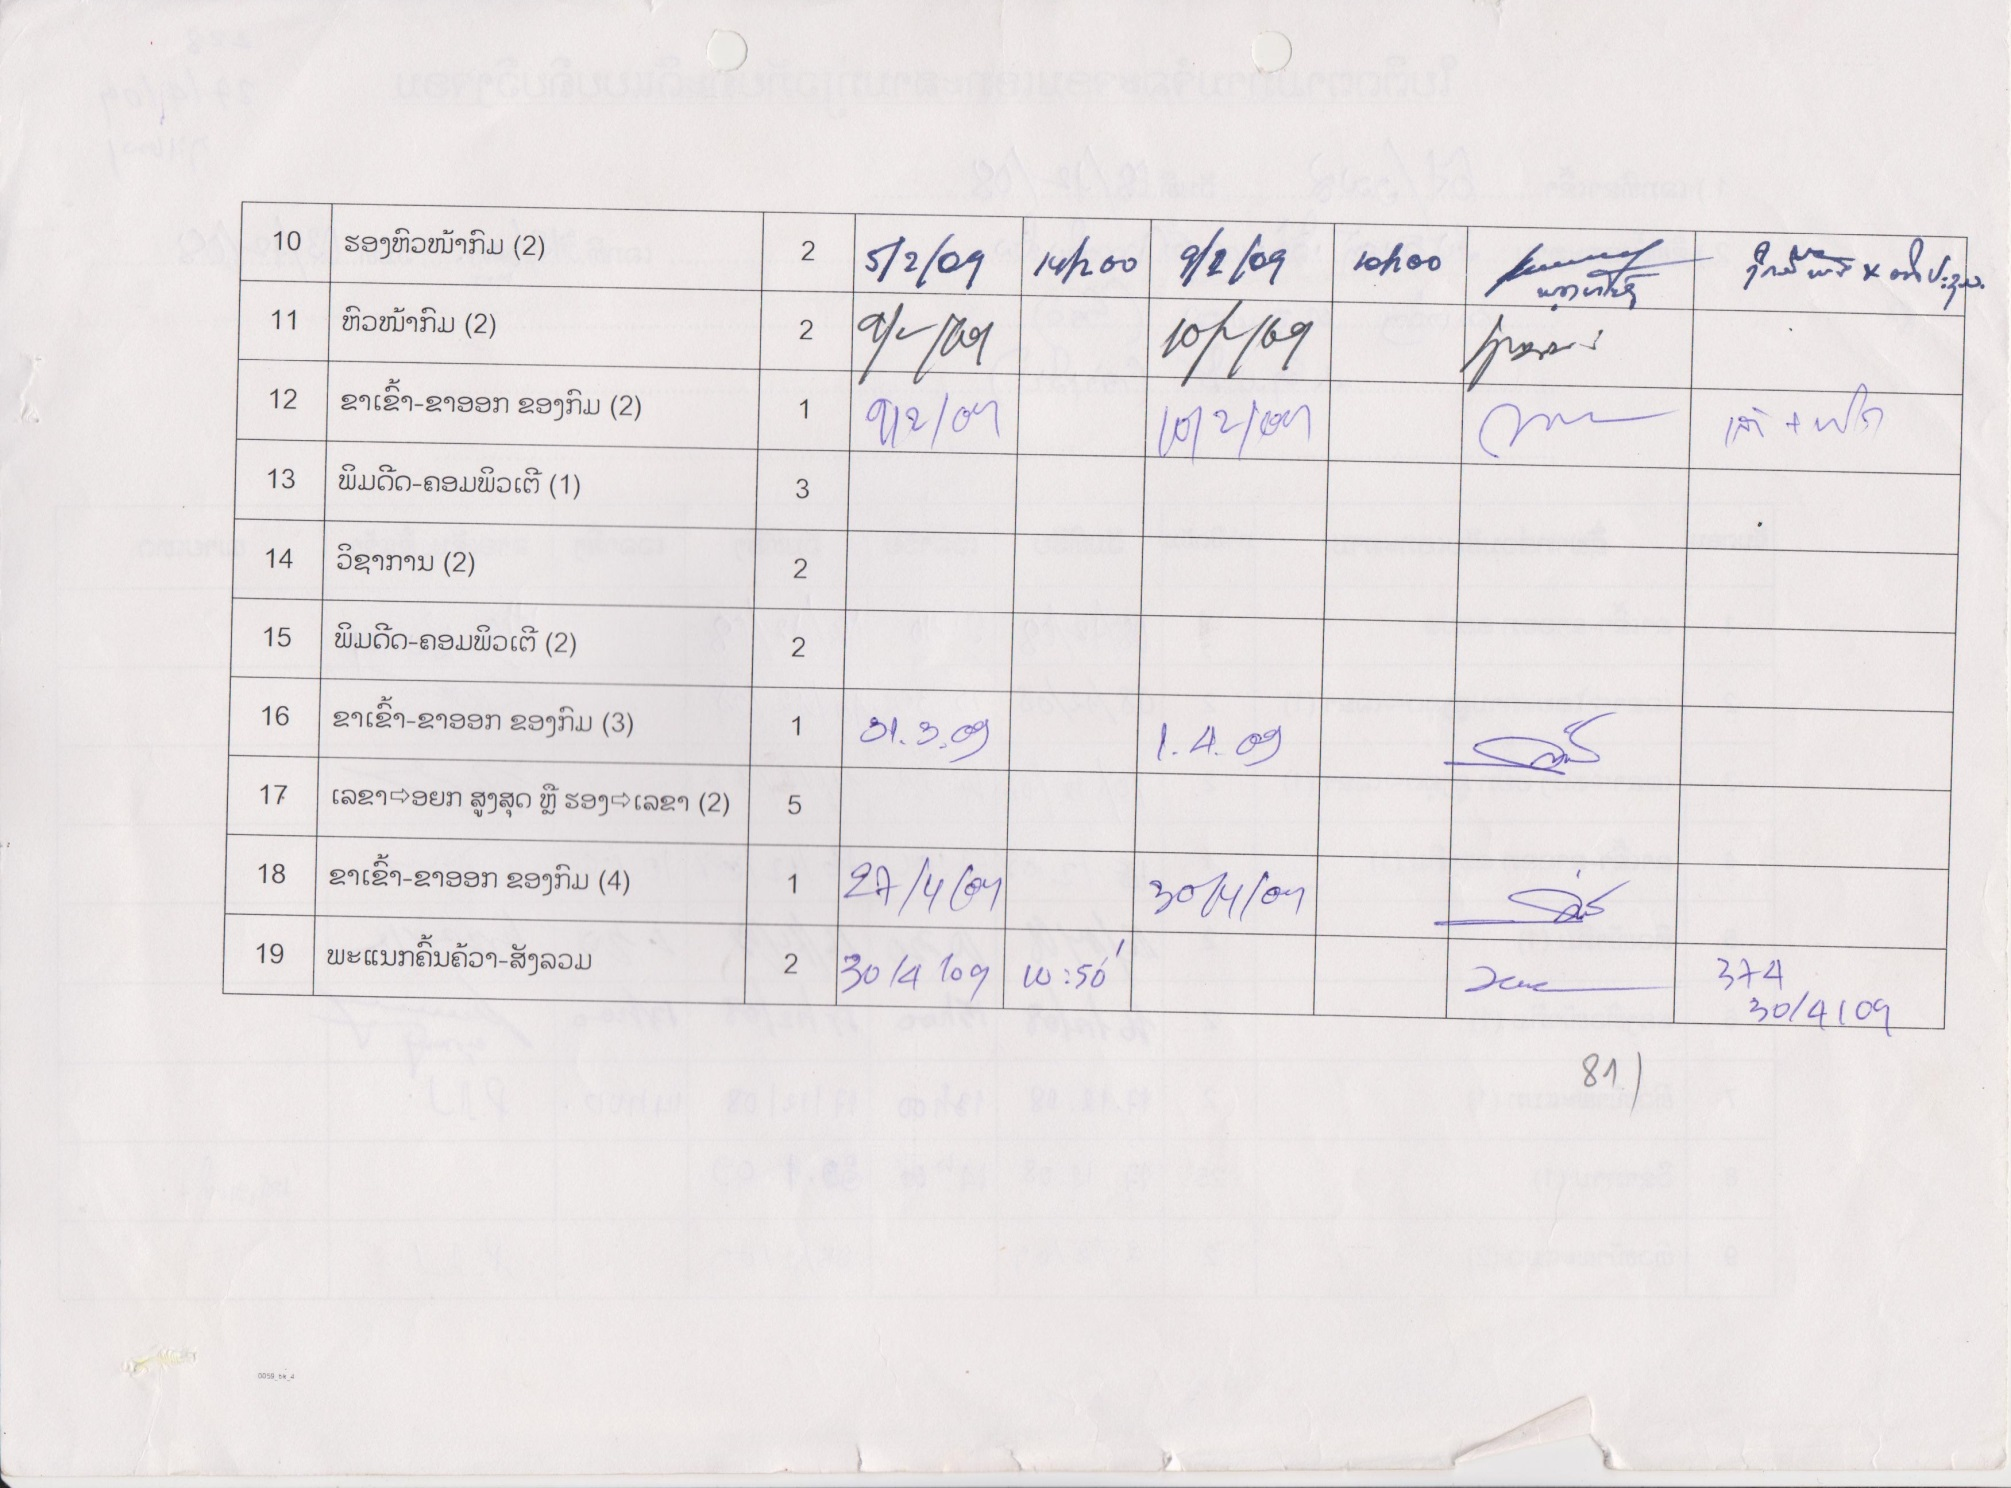 10 ຮອງຫົວໜ້າກົມ (2) 2 5/2/09 14h00 9/2/09 10h00
11 ຫົວໜ້າກົມ (2) 2 9/2/09 10/2/09
12 ຂາເຂົ້າ-ຂາອອກ ຂອງກົມ (2) 1 9/2/09 10/2/09
13 ພິມດີດ-ຄອມພິວເຕີ (1) 3
14 ວິຊາການ (2) 2
15 ພິມດີດ-ຄອມພິວເຕີ (2) 2
16 ຂາເຂົ້າ-ຂາອອກ ຂອງກົມ (3) 1 31.3.09 1.4.09
17 ເລຂາ⇨ອຍກ ສູງສຸດ ຫຼື ຮອງ⇨ເລຂາ (2) 5
18 ຂາເຂົ້າ-ຂາອອກ ຂອງກົມ (4) 1 27/4/09 30/4/09
19 ພະແນກຄົ້ນຄ້ວາ-ສັງລວມ 2 30/4/09 10:50' 374
30/4/09
81)